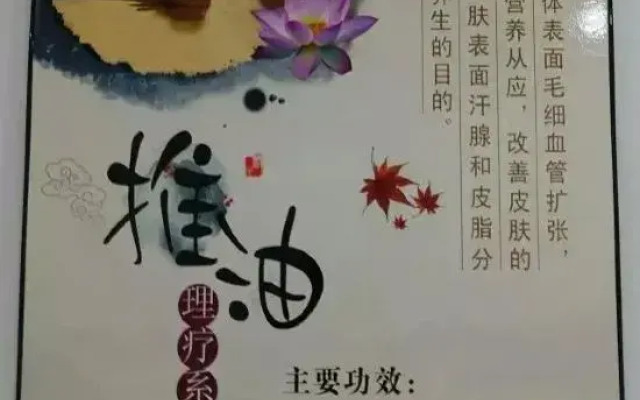 体表面毛细血管扩张，
营养从应，改善皮肤的
肤表面汗腺和皮脂分
生的目的。
推油
理疗系
主要功效：